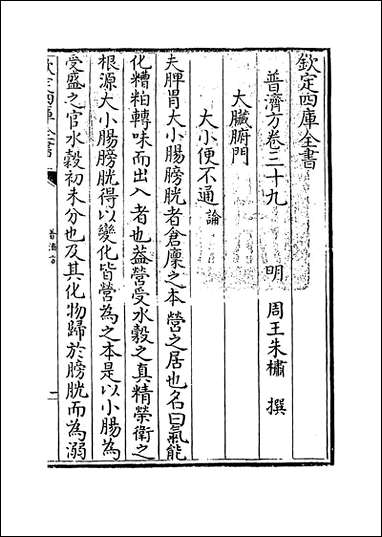 欽定四庫全書
普濟方卷三十九
明 周王朱橚 撰
大臟腑門
大小便不通論
夫脾胃大小腸膀胱者倉廩之本營之居也名曰氣能
化糟粕轉味而出入者也蓋營受水榖之真精榮衛之
根源大小腸膀胱得以變化皆營為之本是以小腸為
受盛之官水榖初未分也及其化物歸於膀胱而為溺
欽定四庫全書
普濟方